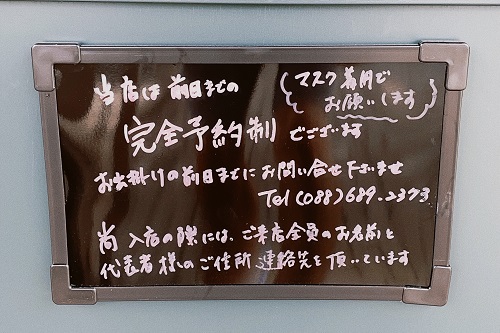 当店は前日までの
マスク着用で
お願いします
完全予約制でございます
お出掛けの前日までにお問い合せ下さいませ
Tel (088) 689-2373
尚 入店の際には、ご来店全員のお名前と
代表者様のご住所 連絡先を頂いています